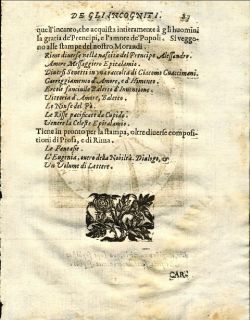 DE GLI INCOGNITI. 83
que l'incanto, che acquista intieramente à gli huomini
la gratia de' Prencipi, e l'amore de' Popoli. Si veggo-
no alle stampe del nostro Morandi.
Rime diverse nella nascita del Prencipe Alessandro.
Amore Messaggiero Epitalamio.
Diversi Sonetti in una raccolta di Giacomo Guaccimani.
Carteggiamento d'Amore, e d'Himeneo.
Ercole fanciullo Baletto d'Inventione.
Vittoria d'Amore, Baletto.
Le Ninfe del Pò.
Le Risse pacificate da Cupido.
Venere la Celeste Epitalamio.
Tiene in pronto per la stampa, oltre diverse composi-
tioni di Prosa, e di Rima.
Le Fantasie.
L'Eugenia, overo della Nobiltà. Dialogo, &
Un Volume di Lettere.
CAR-